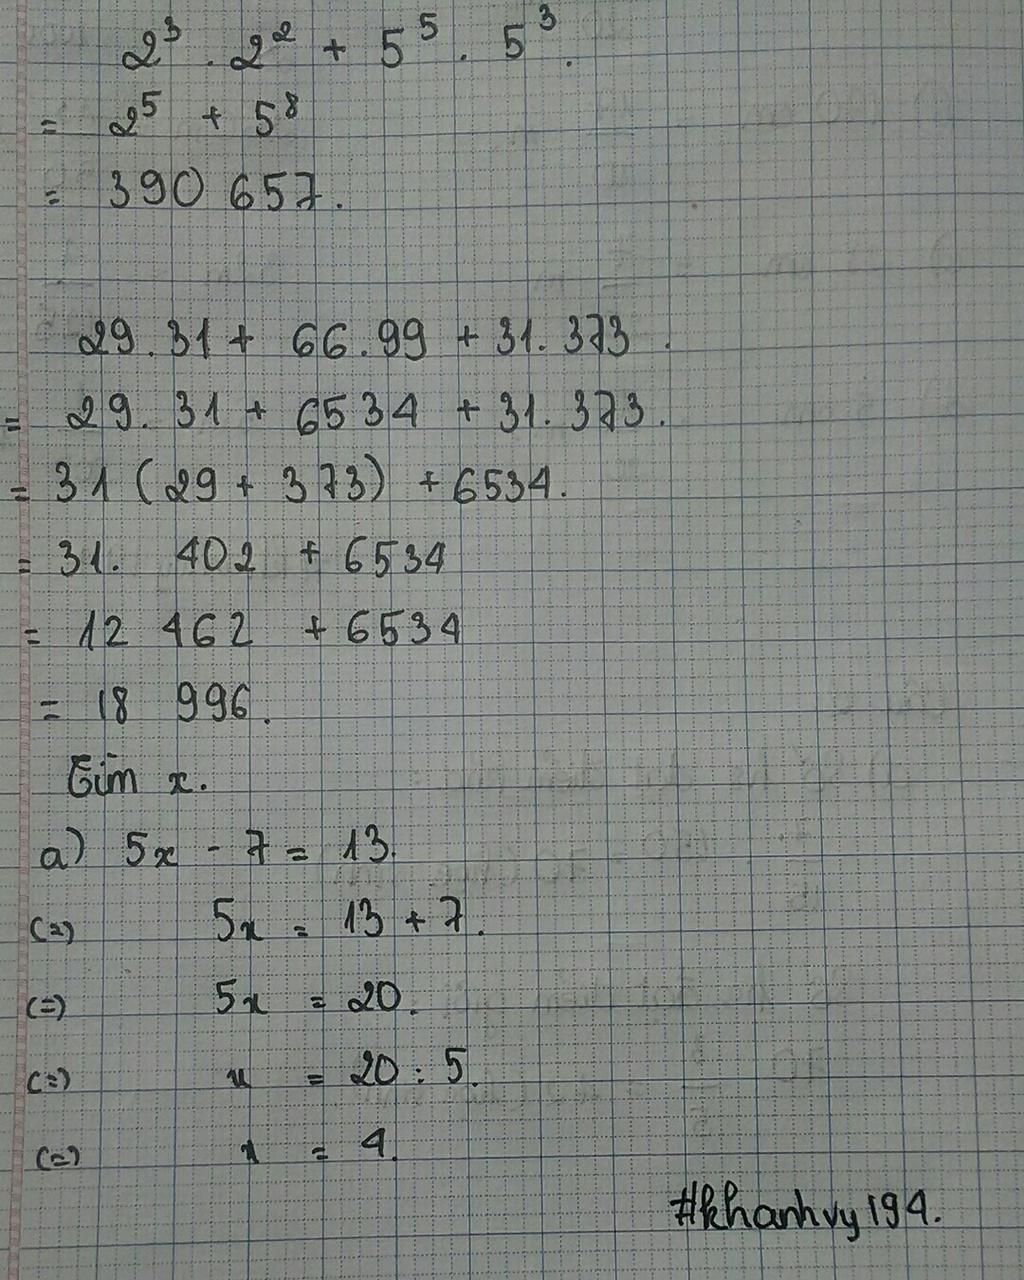 2³ . 2² + 5⁵ . 5³ .
= 2⁵ + 5⁸
= 390 657.
29.31 + 66.99 + 31.373 .
= 29.31 + 6534 + 31.373.
= 31 (29 + 373) + 6534.
= 31. 402 + 6534
= 12 462 + 6534
= 18 996.
Tìm x.
a) 5x - 7 = 13.
(=) 5x = 13 + 7.
(=) 5x = 20.
(=) x = 20 : 5.
(=) x = 4.
#khanhvy194.